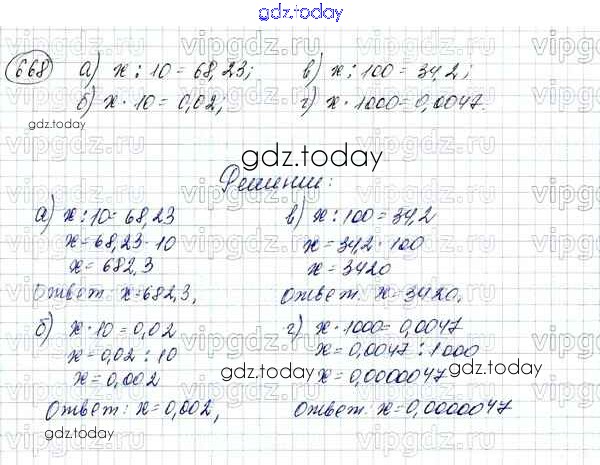 gdz.today
668 а) x : 10 = 68,23; в) x : 100 = 34,2;
б) x · 10 = 0,02; г) x · 1000 = 0,0047.
gdz.today
gdz.today
Решении:
а) x : 10 = 68,23
x = 68,23 · 10
x = 682,3
Ответ: x = 682,3,
в) x : 100 = 34,2
x = 34,2 · 100
x = 3420
Ответ: x = 3420,
б) x · 10 = 0,02
x = 0,02 : 10
x = 0,002
Ответ: x = 0,002,
gdz.today
г) x · 1000 = 0,0047
x = 0,0047 : 1000
x = 0,0000047
Ответ: x = 0,0000047
gdz.today
gdz.today
vipgdz.com